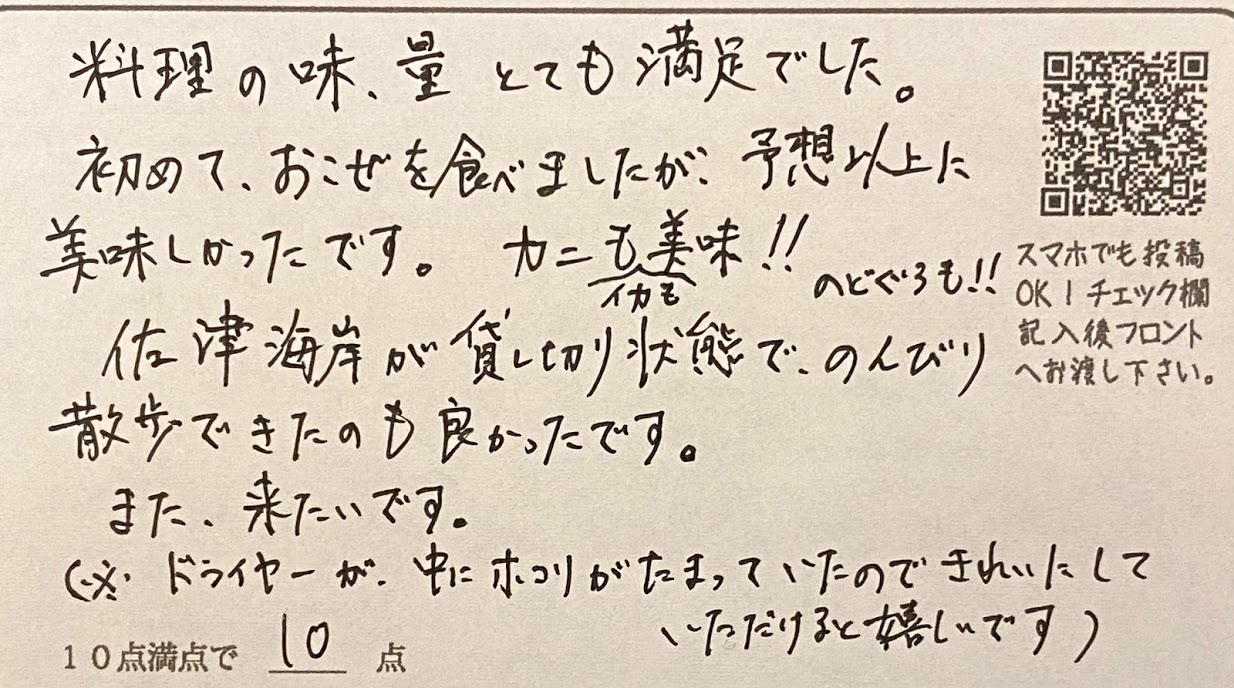 料理の味、量 とても満足でした。
初めて、おこぜを食べましたが、予想以上に
美味しかったです。 カニも美味!! のどぐろも!!
イカも
佐津海岸が貸し切り状態で、のんびり
散歩できたのも良かったです。
また、来たいです。
(※ ドライヤーが、中にホコリがたまっていたのできれいにして
いただけると嬉しいです)
10点満点で 10 点
スマホでも投稿
OK!チェック欄
記入後フロント
へお渡し下さい。